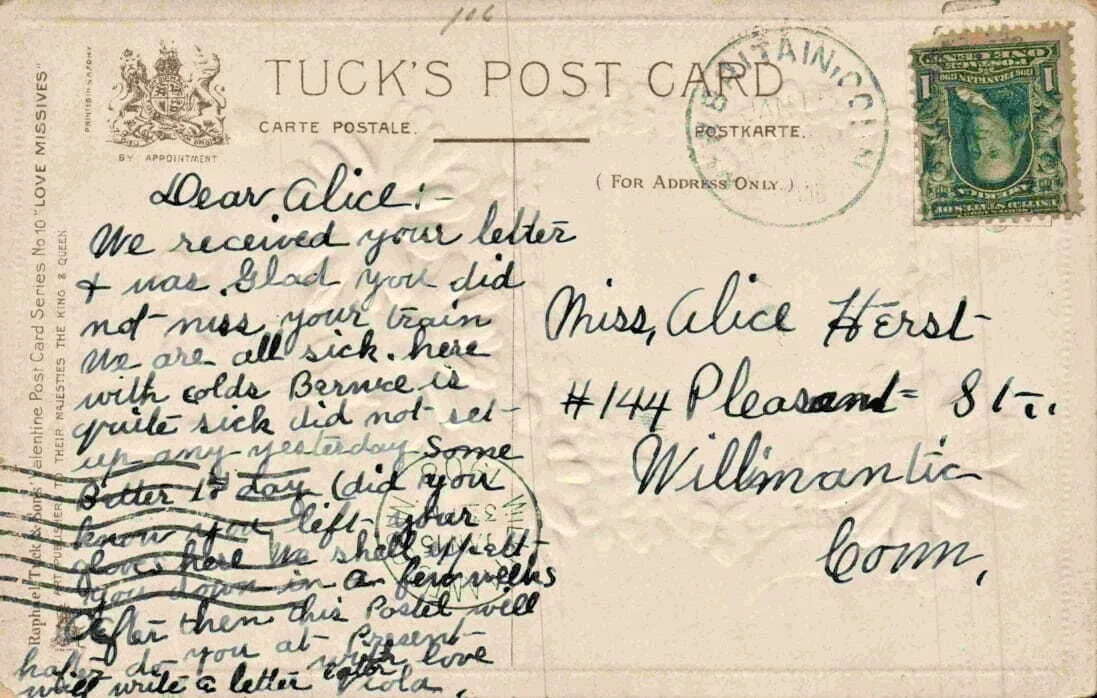 106
TUCK'S POST CARD
CARTE POSTALE.
POSTKARTE.
BY APPOINTMENT
(FOR ADDRESS ONLY.)
PRINTED IN SAXONY
Raphael Tuck & Sons' Valentine Post Card Series No 10 "LOVE MISSIVES"
ART PUBLISHERS TO THEIR MAJESTIES THE KING & QUEEN
BRITAIN, CONN
Dear Alice:-
We received your letter
& was Glad you did
not miss your train
We are all sick here
with colds Bernice is
quite sick did not set
up any yesterday Some
Better to day (did you
know you left your
glove here We shall expect
you down in a few weeks
After then this Postel will
haft do you at Present
will write a letter later with love
Viola.
Miss, Alice Herst
#144 Pleasant St.
Willimantic
Conn,
UNITED STATES OF
AMERICA
FRANKLIN
1 1
POSTAGE
ONE CENT